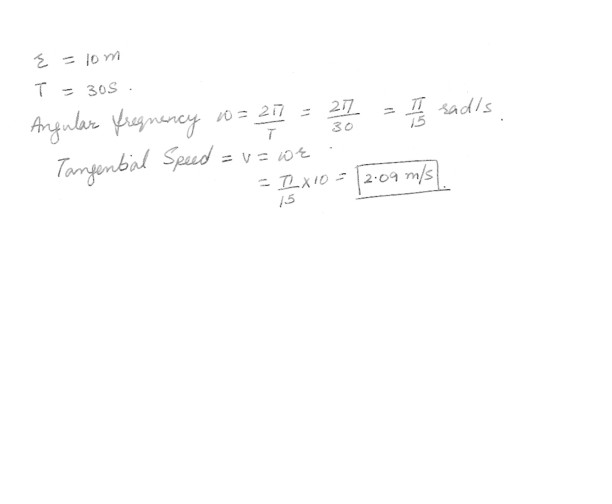 r = 10m
T = 30s.
Angular frequency ω = 2π/T = 2π/30 = π/15 rad/s.
Tangential Speed = v = ωr.
= π/15 × 10 = 2.09 m/s.